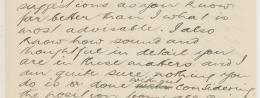 suggestions as you know
far better than I what is
most advisable. I also
know how sound and
thoughtful in detail you
are in these matters and I
am quite sure nothing you
do is or done without considering
the position